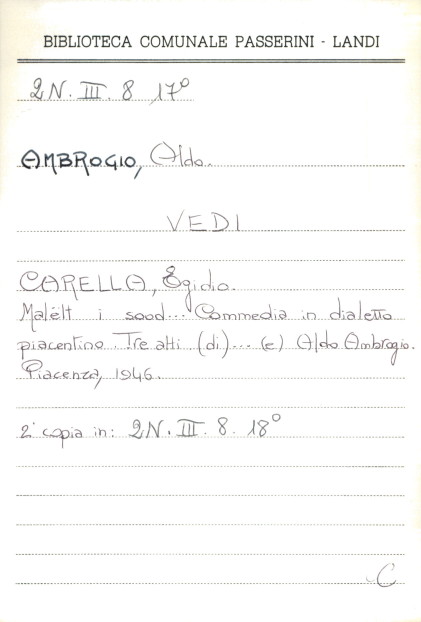 BIBLIOTECA COMUNALE PASSERINI - LANDI
2N. III. 8 17°
AMBROGIO, Aldo.
VEDI
CARELLA, Egidio.
Malëtt i sood... Commedia in dialetto
piacentino. Tre atti (di)... (e) Aldo Ambrogio.
Piacenza, 1946.
2ª copia in: 2N. III. 8. 18°
C